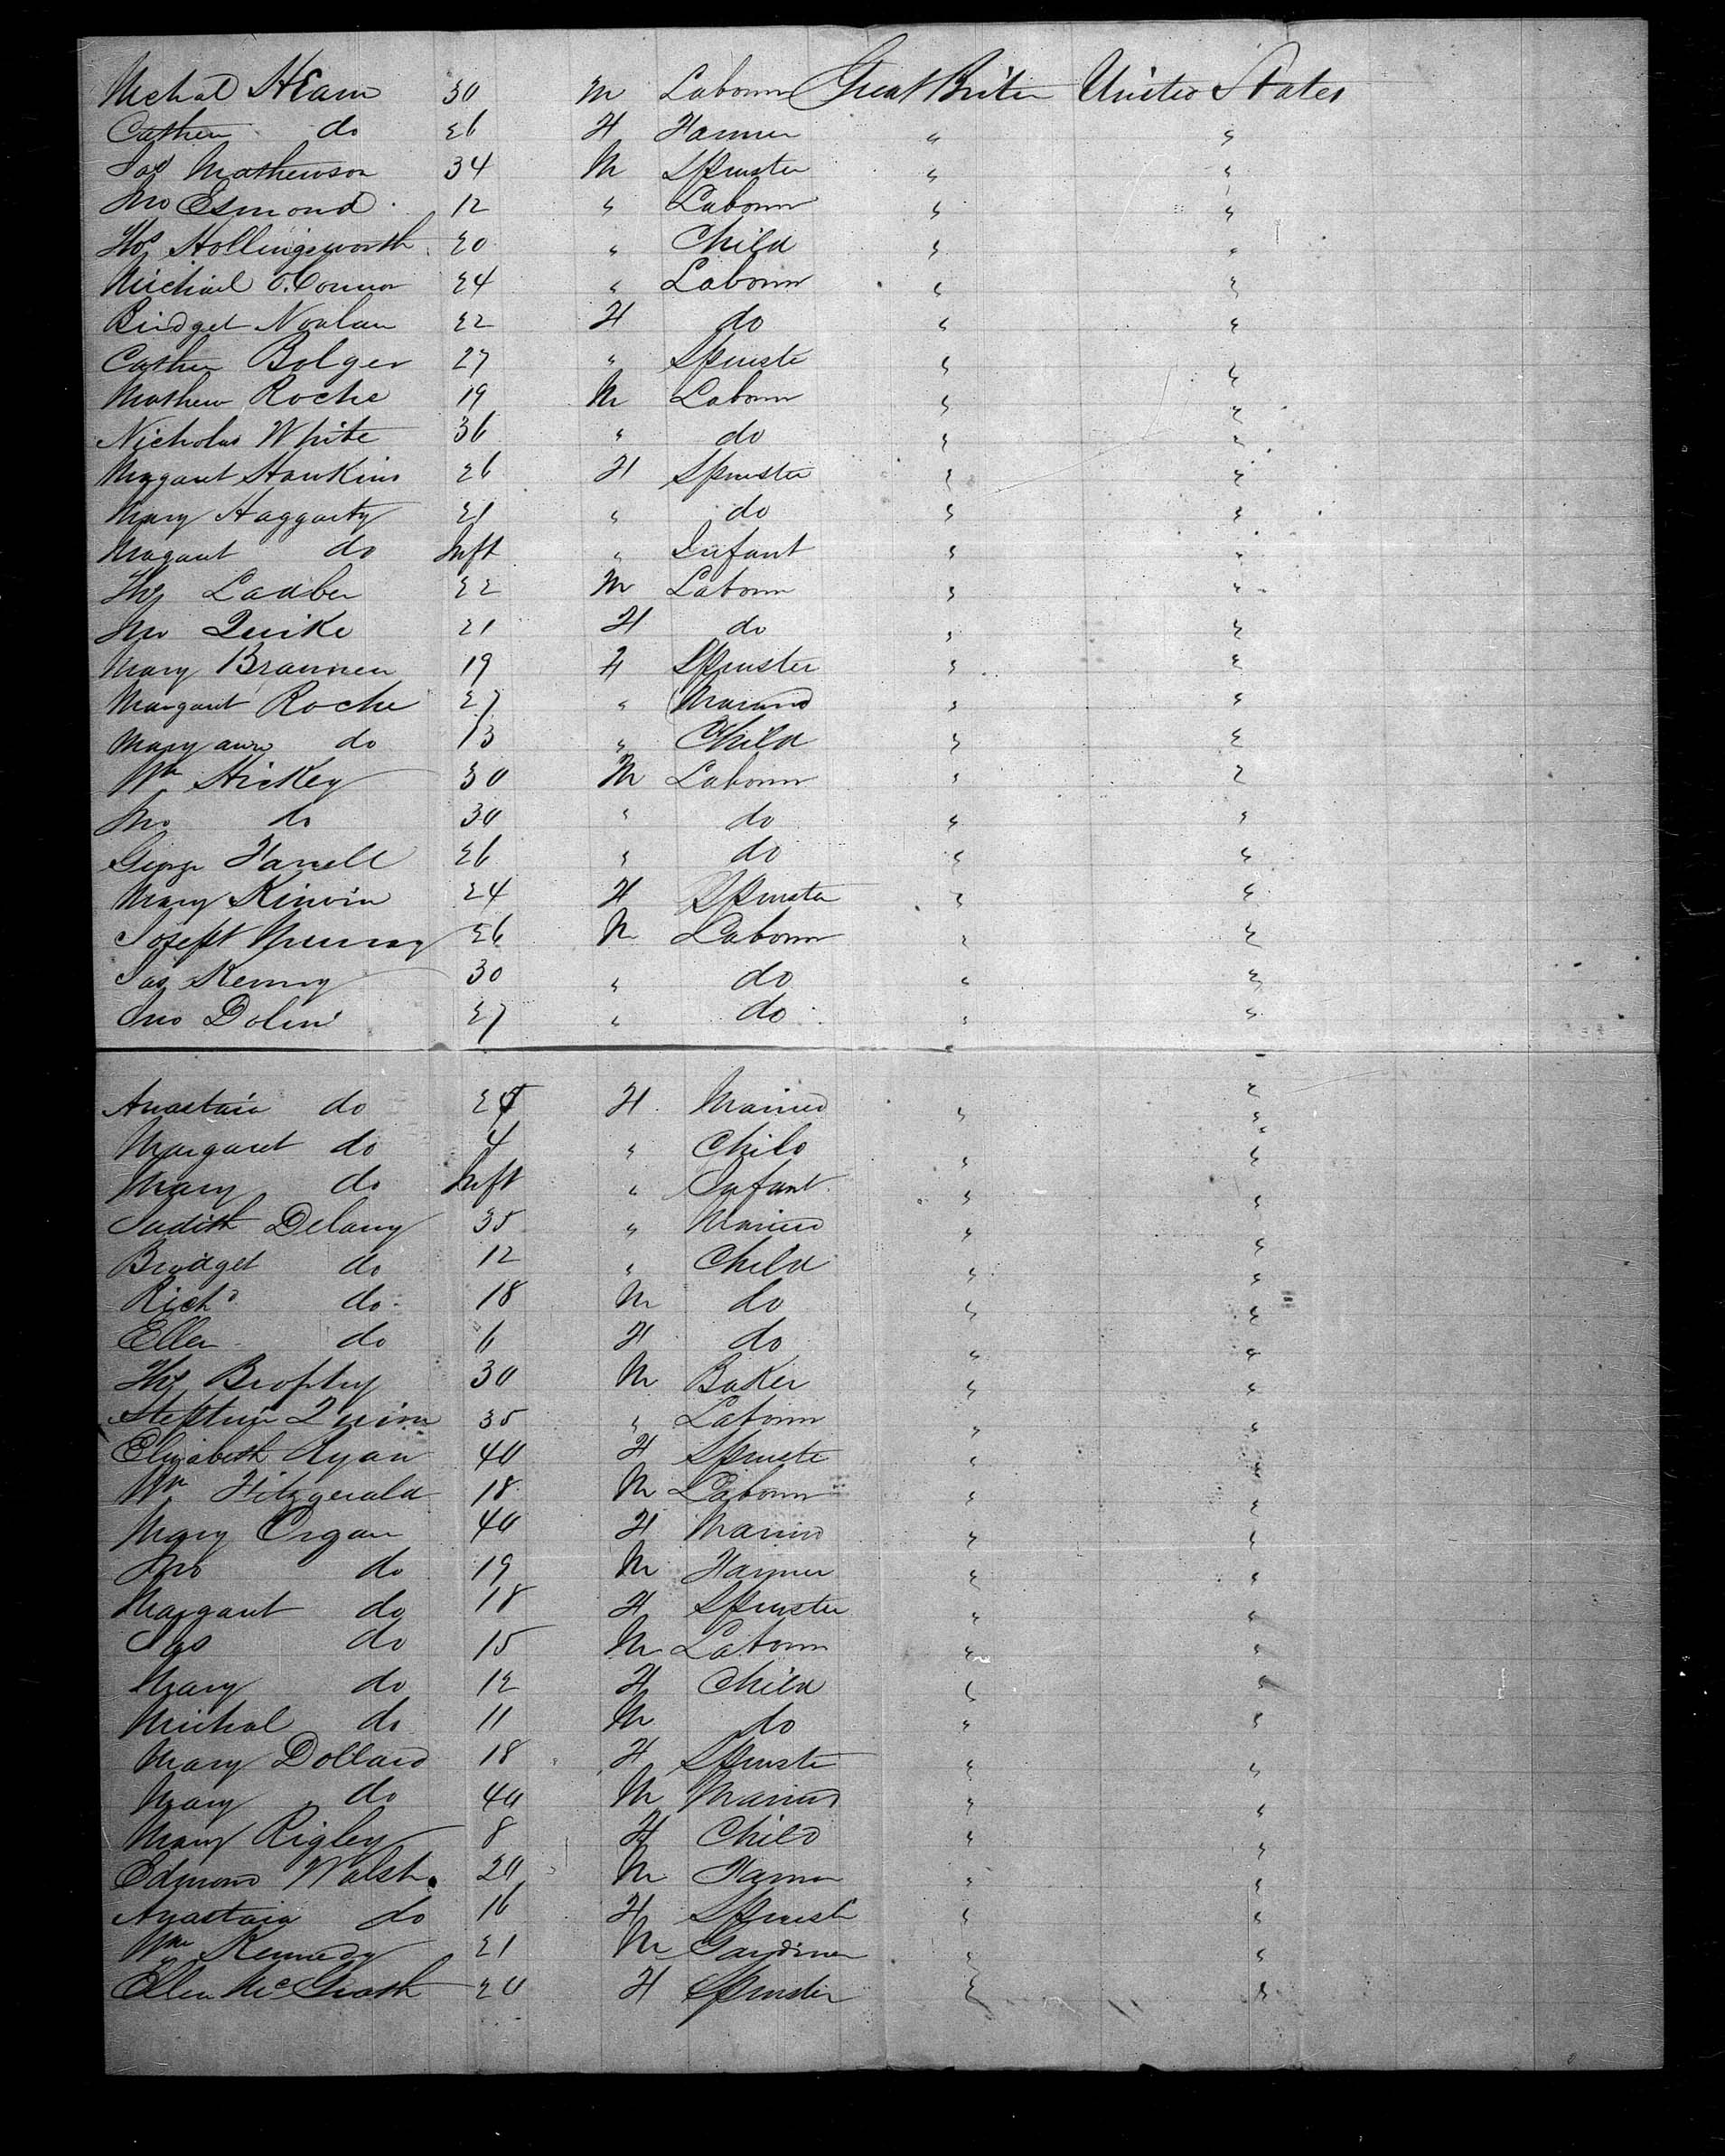 Michal Ham 30 M Labourr Great Briten United States
Cathen do 26 F Farmer " "
Jas Mathewson 34 M Spinster " "
Jno Esmond 12 " Labourr " "
Thos Hollingsworth 20 " Child " "
Michael O.Connor 24 " Labourr " "
Bridget Nowlan 22 F do " "
Cathen Bolger 27 " Spinste " "
Mathew Roche 19 M Labourr " "
Nicholas White 36 " do " "
Margaret Hawkins 26 F Spinster " "
Mary Haggarty 21 " do " "
Margaret do Inft " Infant " "
Thos Ladber 22 M Labourr " "
Jno Quike 21 F do " "
Mary Brannen 19 F Spinster " "
Margaret Roche 27 " Married " "
Mary ann do 13 " Child " "
Wm Hickey 30 M Labourr " "
Jno do 30 " do " "
George Farrell 26 " do " "
Mary Kirwin 24 F Spinster " "
Joseph Murray 26 M Labourr " "
Jas Kenny 30 " do " "
Jno Dolin 27 " do " "
Anastaia do 24 F Married " "
Margaret do 4 " Child " "
Mary do Inft " Infant " "
Judith Delany 35 " Married " "
Bridget do 12 " Child " "
Richd do 18 M do " "
Ellen do 6 F do " "
Thos Brophy 30 M Baker " "
Stephen Quinn 35 " Labourr " "
Elizabeth Ryan 40 F Spinste " "
Wm Fitzgerald 18 M Labourr " "
Mary Organ 40 F Married " "
Jno do 19 M Farmer " "
Margaret do 18 F Spinster " "
Jas do 15 M Labourr " "
Mary do 12 F Child " "
Michal do 11 M do " "
Mary Dollard 18 F Spinste " "
Mary do 40 M Married " "
Mary Rigley 8 F Child " "
Edmond Walsh 20 M Farmer " "
Anastaia do 16 F Spinst " "
Wm Kennedy 21 M Gardiner " "
Ellen McGrath 20 F Spinster " "